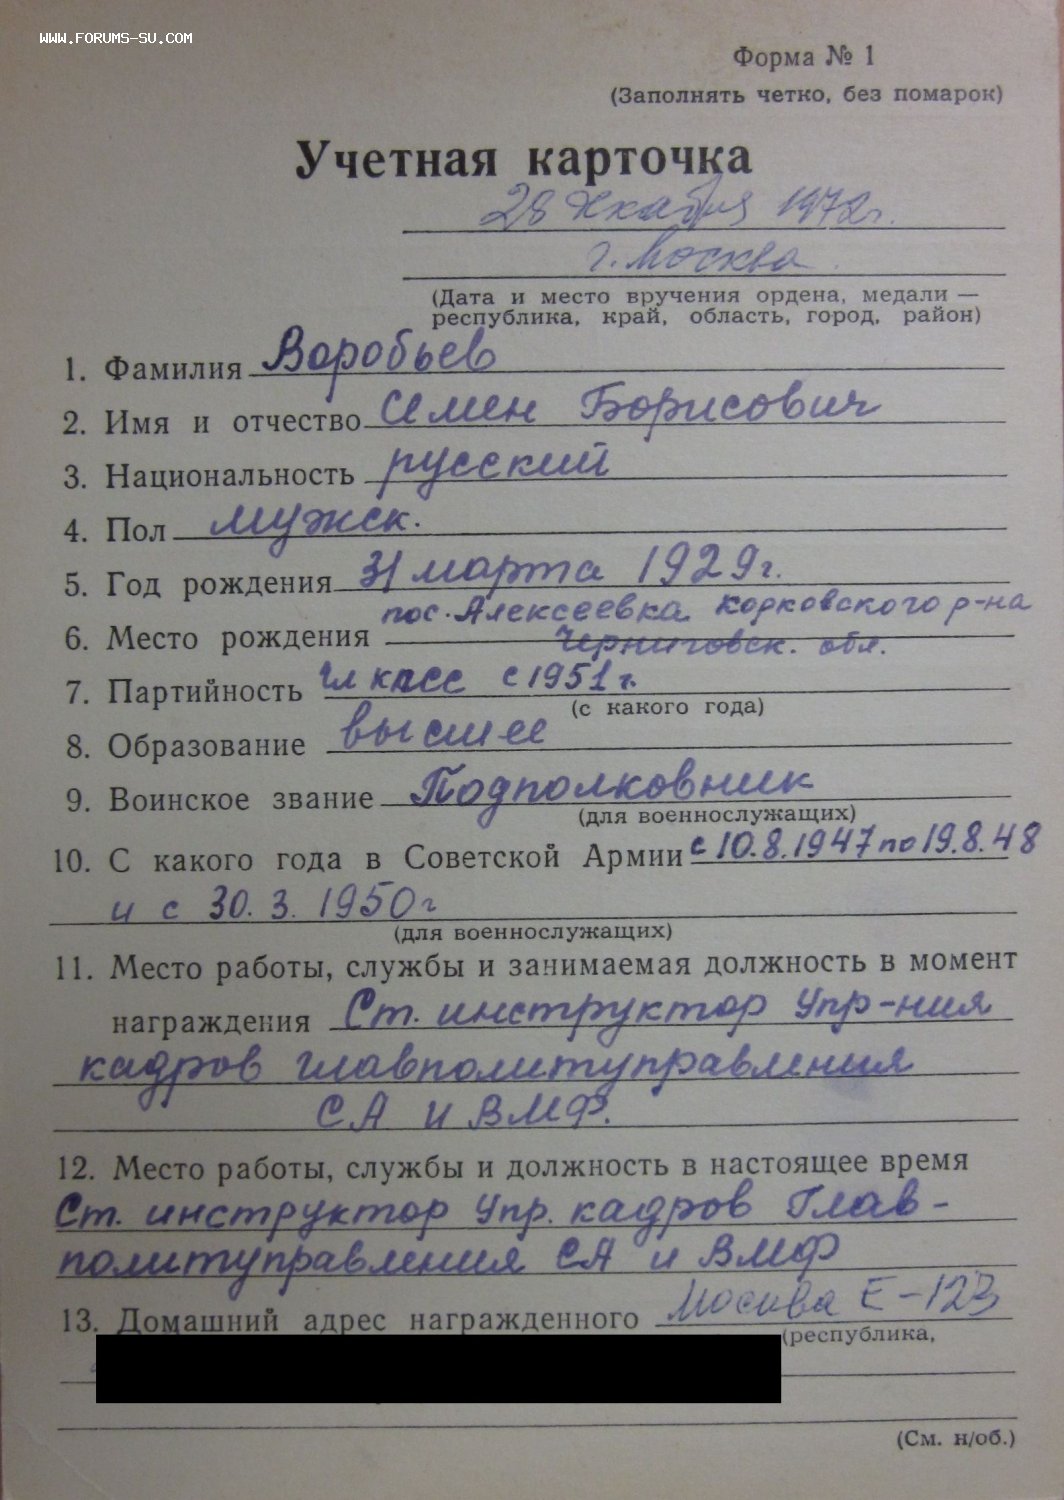 WWW.FORUMS-SU.COM
Форма № 1
(Заполнять четко, без помарок)
Учетная карточка
28 декабря 1972г.
г. Москва
(Дата и место вручения ордена, медали —
республика, край, область, город, район)
1. Фамилия Воробьев
2. Имя и отчество Семен Борисович
3. Национальность русский
4. Пол мужск.
5. Год рождения 31 марта 1929г.
пос. Алексеевка Корковского р-на
6. Место рождения Черниговск. обл.
7. Партийность Чл КПСС с 1951 г.
(с какого года)
8. Образование высшее
9. Воинское звание Подполковник
(для военнослужащих)
10. С какого года в Советской Армии с 10.8.1947 по 19.8.48
и с 30.3.1950г
(для военнослужащих)
11. Место работы, службы и занимаемая должность в момент
награждения Ст. инструктор Упр-ния
кадров главполитуправления
СА и ВМФ.
12. Место работы, службы и должность в настоящее время
Ст. инструктор Упр. кадров Глав-
политуправления СА и ВМФ
13. Домашний адрес награжденного Москва Е-123
(республика,
(См. н/об.)